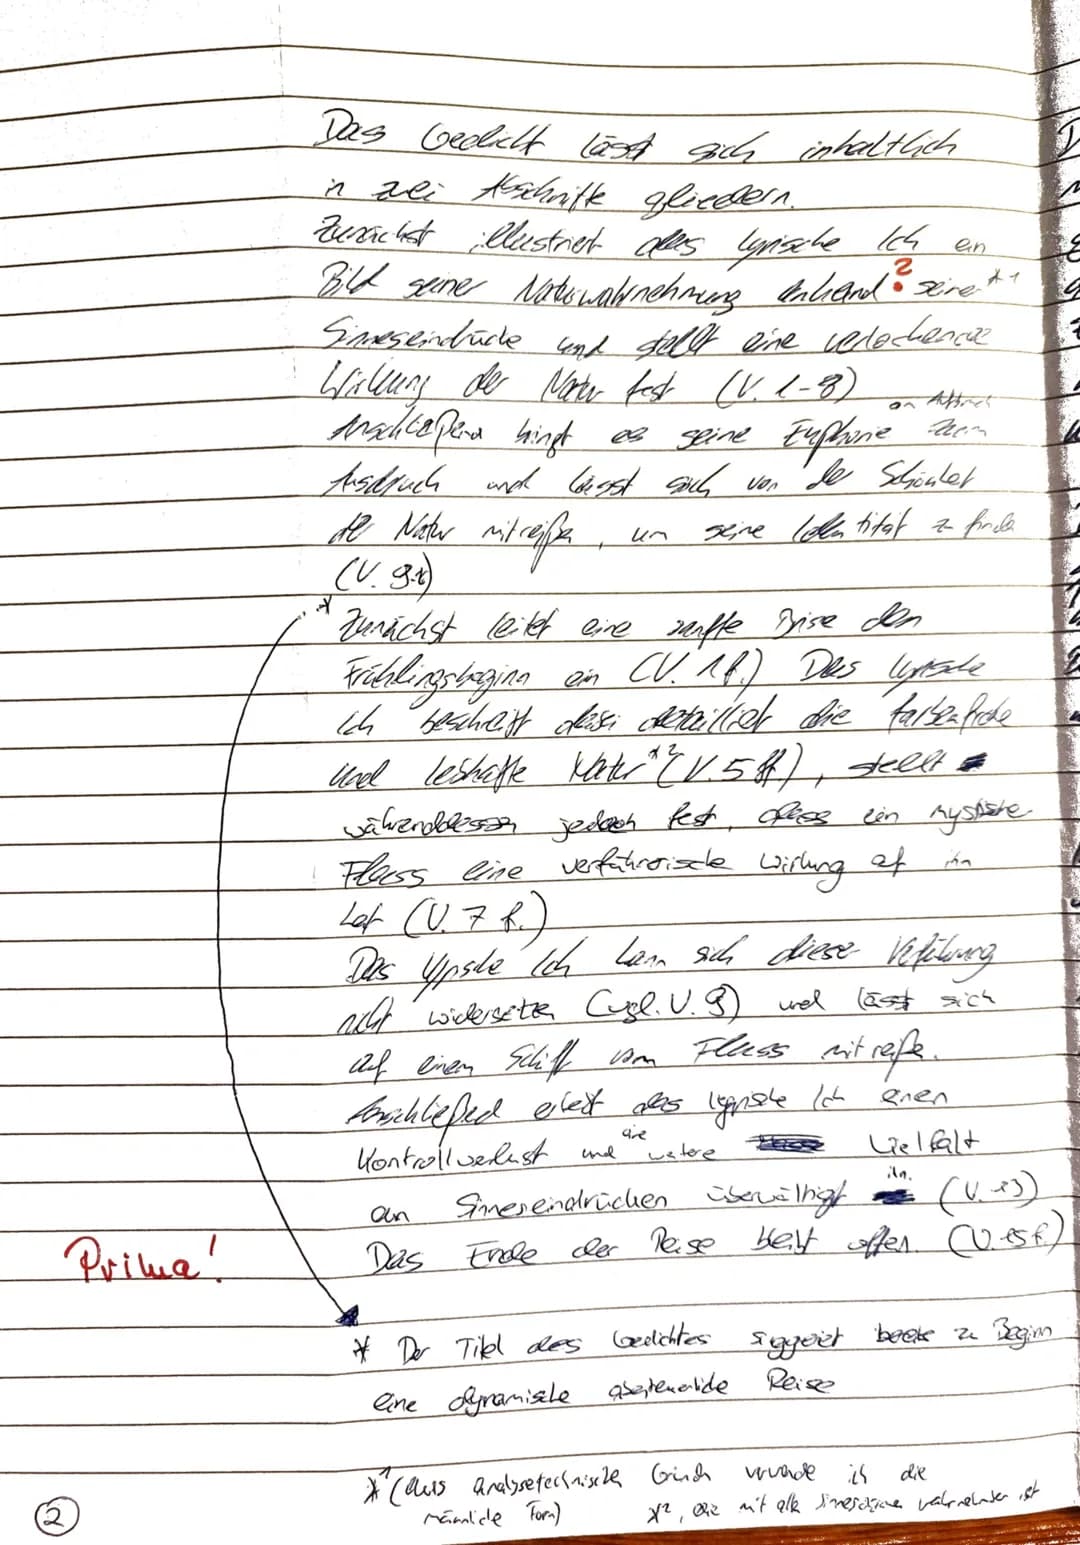 Das Gedicht lässt sich inhaltlich
in zwei Abschnitte gliedern.
Zunächst illustriert das lyrische Ich ein
?
Bild seiner Naturwahrnehmung anhand seiner *1
Sinneseindrücke und stellt eine verlockende
Wirkung der Natur fest (V. 1-8)
Anschließend bringt es seine Euphorie zum
Ausdruck und lässt sich von der Schönheit
der Natur mitreißen, um seine Identität zu finden
(V. 9
* Zunächst leitet eine sanfte Brise den
Frühlingsbeginn ein (V. 1f.) Das lyrische
Ich beschreibt dabei detailliert die farbenfrohe
und lebhafte Natur *2 (V. 5 ff.), stellt
währenddessen jedoch fest, dass ein mystischer
Fluss eine verführerische Wirkung auf ihn
hat (V. 7 f.)
Das lyrische Ich kann sich dieser Verführung
nicht widersetzen (vgl. V. 9) und lässt sich
auf einem Schiff vom Fluss mitreißen.
Anschließend erlebt das lyrische Ich einen
Kontrollverlust und die weitere Vielfalt
an Sinneseindrücken überwältigt ihn. (V. 13)
Das Ende der Reise bleibt offen. (V. 15 f.)
Prima!
* Der Titel des Gedichtes suggeriert bereits zu Beginn
eine dynamische abenteuerliche Reise
*1 (Aus analysetechnischen Gründen verwende ich die
männliche Form)
*2, die mit allen Sinnesorganen wahrnehmbar ist
2